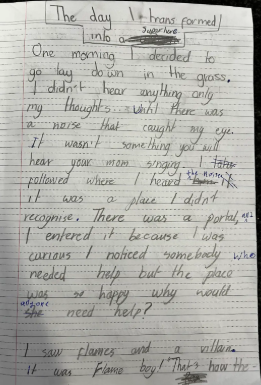 The day I transformed
into a Superhero
One morning I decided to
go lay down in the grass.
I didn't hear anything only
my thoughts... until there was
a noise that caught my eye.
It wasn't something you will
hear your mom singing. I
followed where I heard the noise
it was a place I didn't
recognise. There was a portal, and
I entered it because I was
curious I noticed somebody who
needed help but the place
was so happy why would
anyone need help?
I saw flames and a villain.
it was Flame boy! That's how the